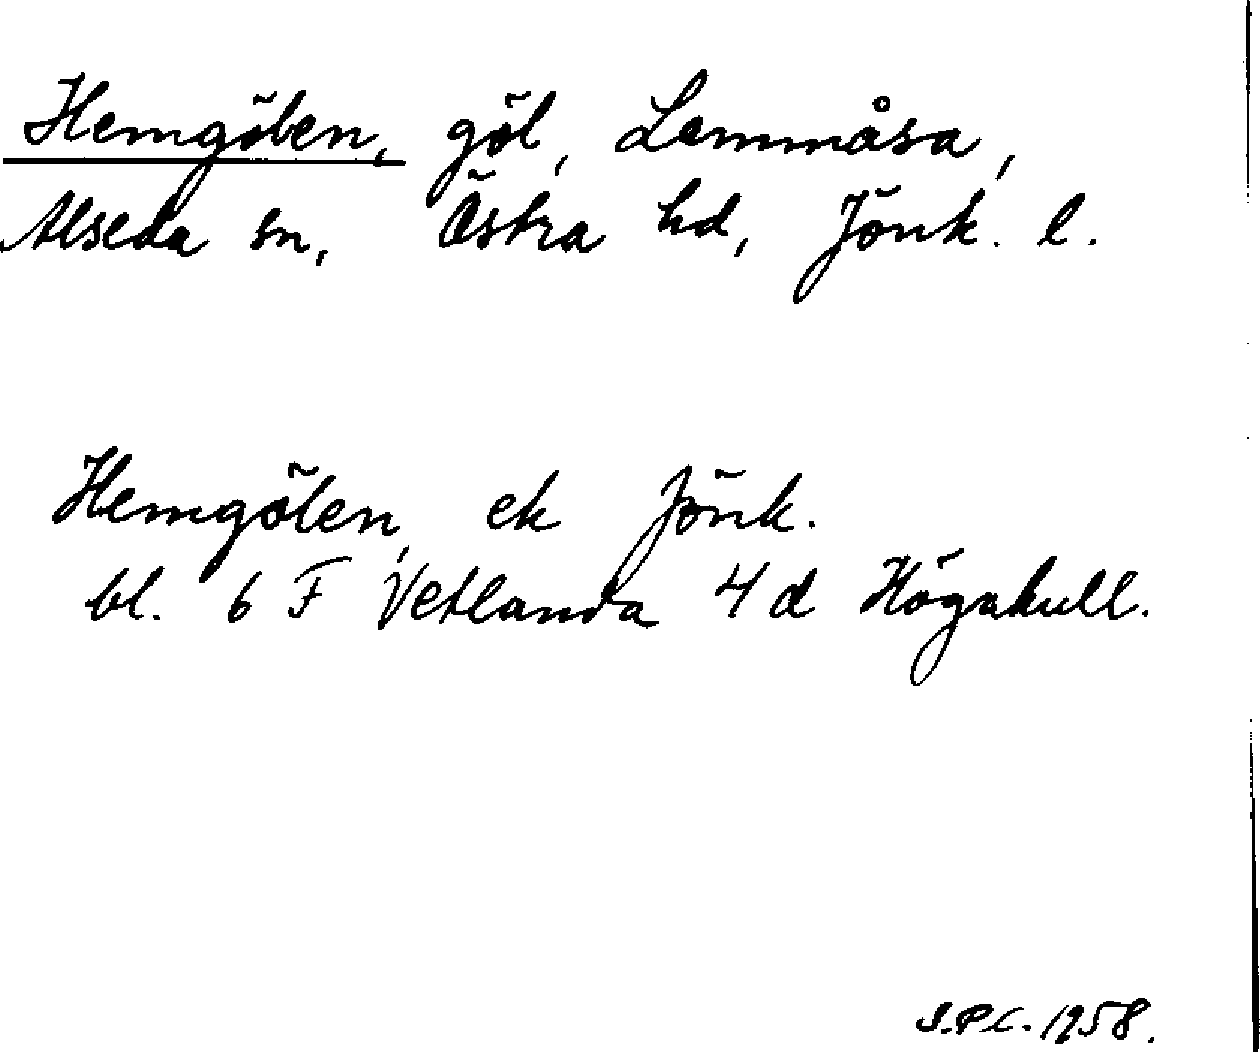 Hemgölen, göl, Lammåsa,
Alseda sn, Östra hd, Jönk. l.
Hemgölen, ek Jönk.
bl. 6 F Vetlanda 4 d Högakull.
S.P.C. 1958.